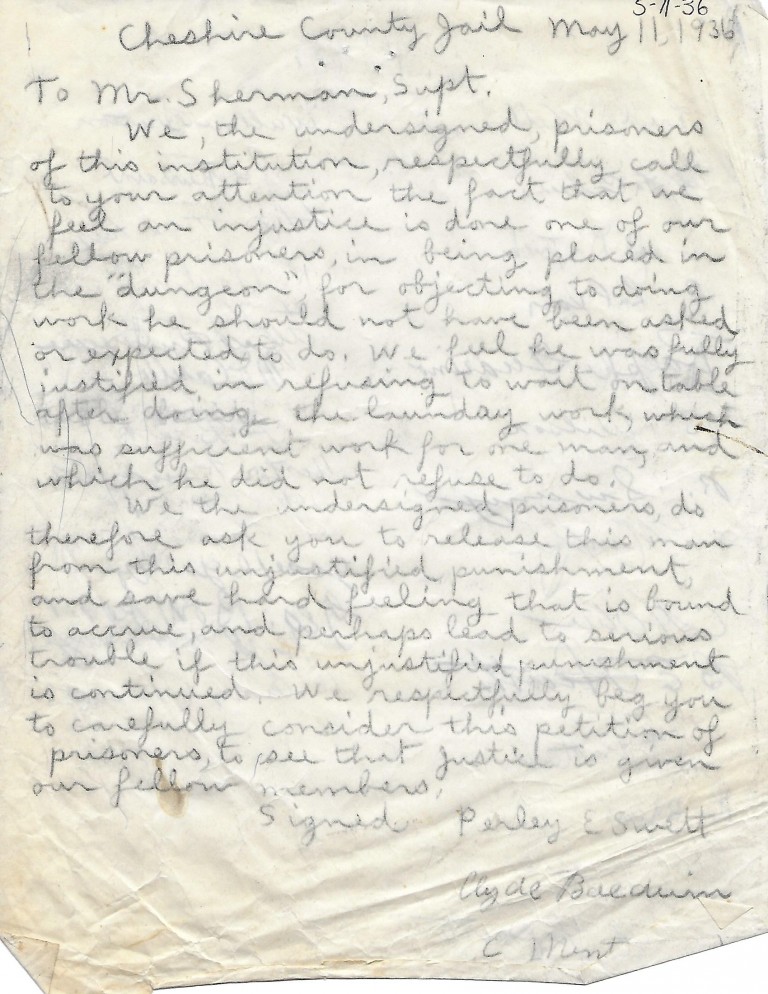 5-11-36
Cheshire County Jail May 11, 1936
To Mr. Sherman, Supt.
We, the undersigned, prisoners
of this institution, respectfully call
to your attention the fact that we
feel an injustice is done one of our
fellow prisoners, in being placed in
the "dungeon", for objecting to doing
work he should not have been asked
or expected to do. We feel he was fully
justified in refusing to wait on table
after doing the launday work, which
was sufficient work for one man, and
which he did not refuse to do.
We the undersigned prisoners, do
therefore ask you to release this man
from this unjustified punishment,
and save hard feeling that is bound
to accrue, and perhaps lead to serious
trouble if this unjustified punishment
is continued. We respectfully beg you
to carefully consider this petition of
prisoners, to see that justice is given
our fellow members.
Signed Perley E Swett
Clyde Baldwin
C Ment